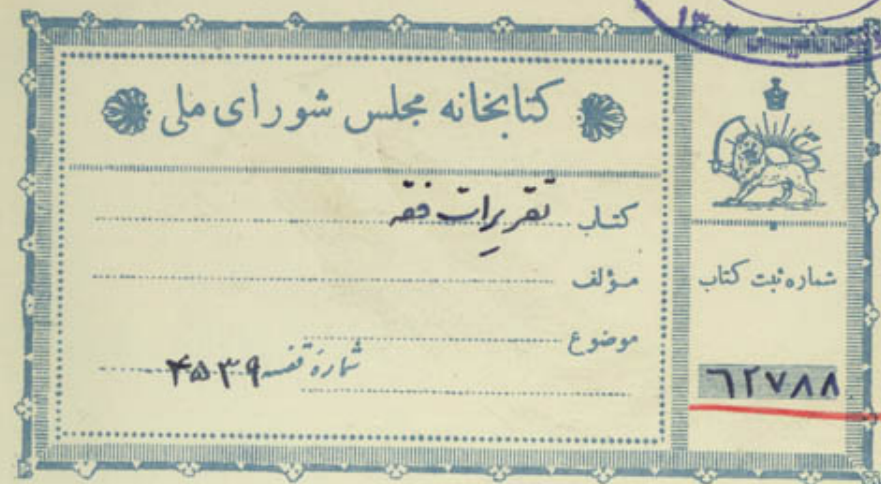 کتابخانه مجلس شورای ملی
کتاب تقریرات فقه
مؤلف
موضوع
شمارهٔ قفسه ۴۵۳۹
شماره ثبت کتاب
۶۲۷۸۸